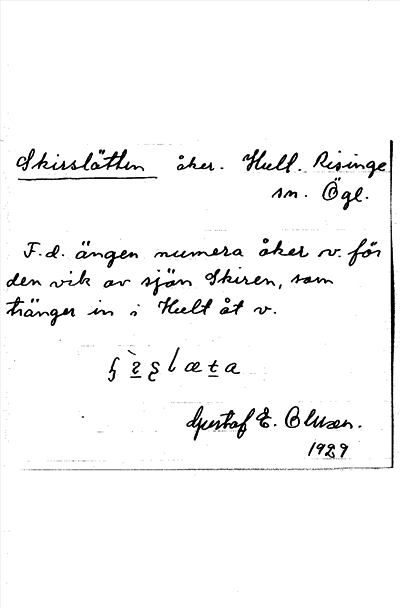 Skirslätten åker. Hult. Risinge
sn. Ögl.
F.d. ängen numera åker v. för
den vik av sjön Skiren, som
tränger in i Hult åt v.
Gustaf E.
1929